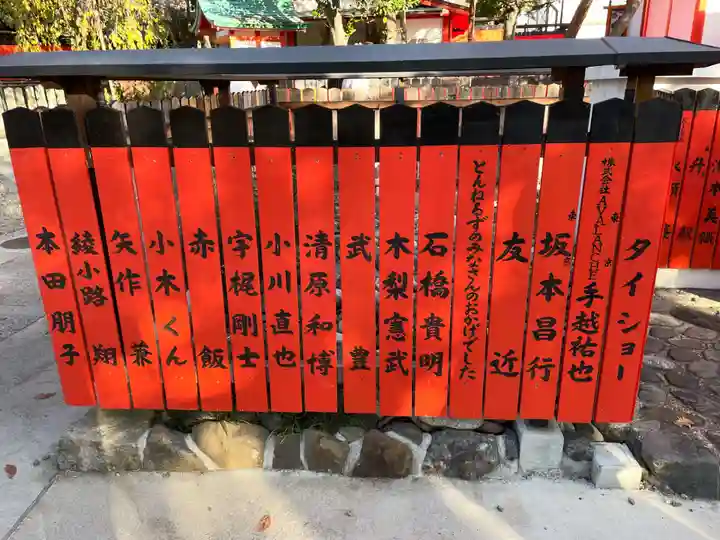 タイショー
株式会社AVALANCHE 手越祐也
東京 坂本昌行
友近
とんねるずのみなさんのおかげでした
石橋貴明
木梨憲武
武豊
清原和博
小川直也
宇梶剛士
赤飯
小木くん
矢作兼
綾小路翔
本田朋子